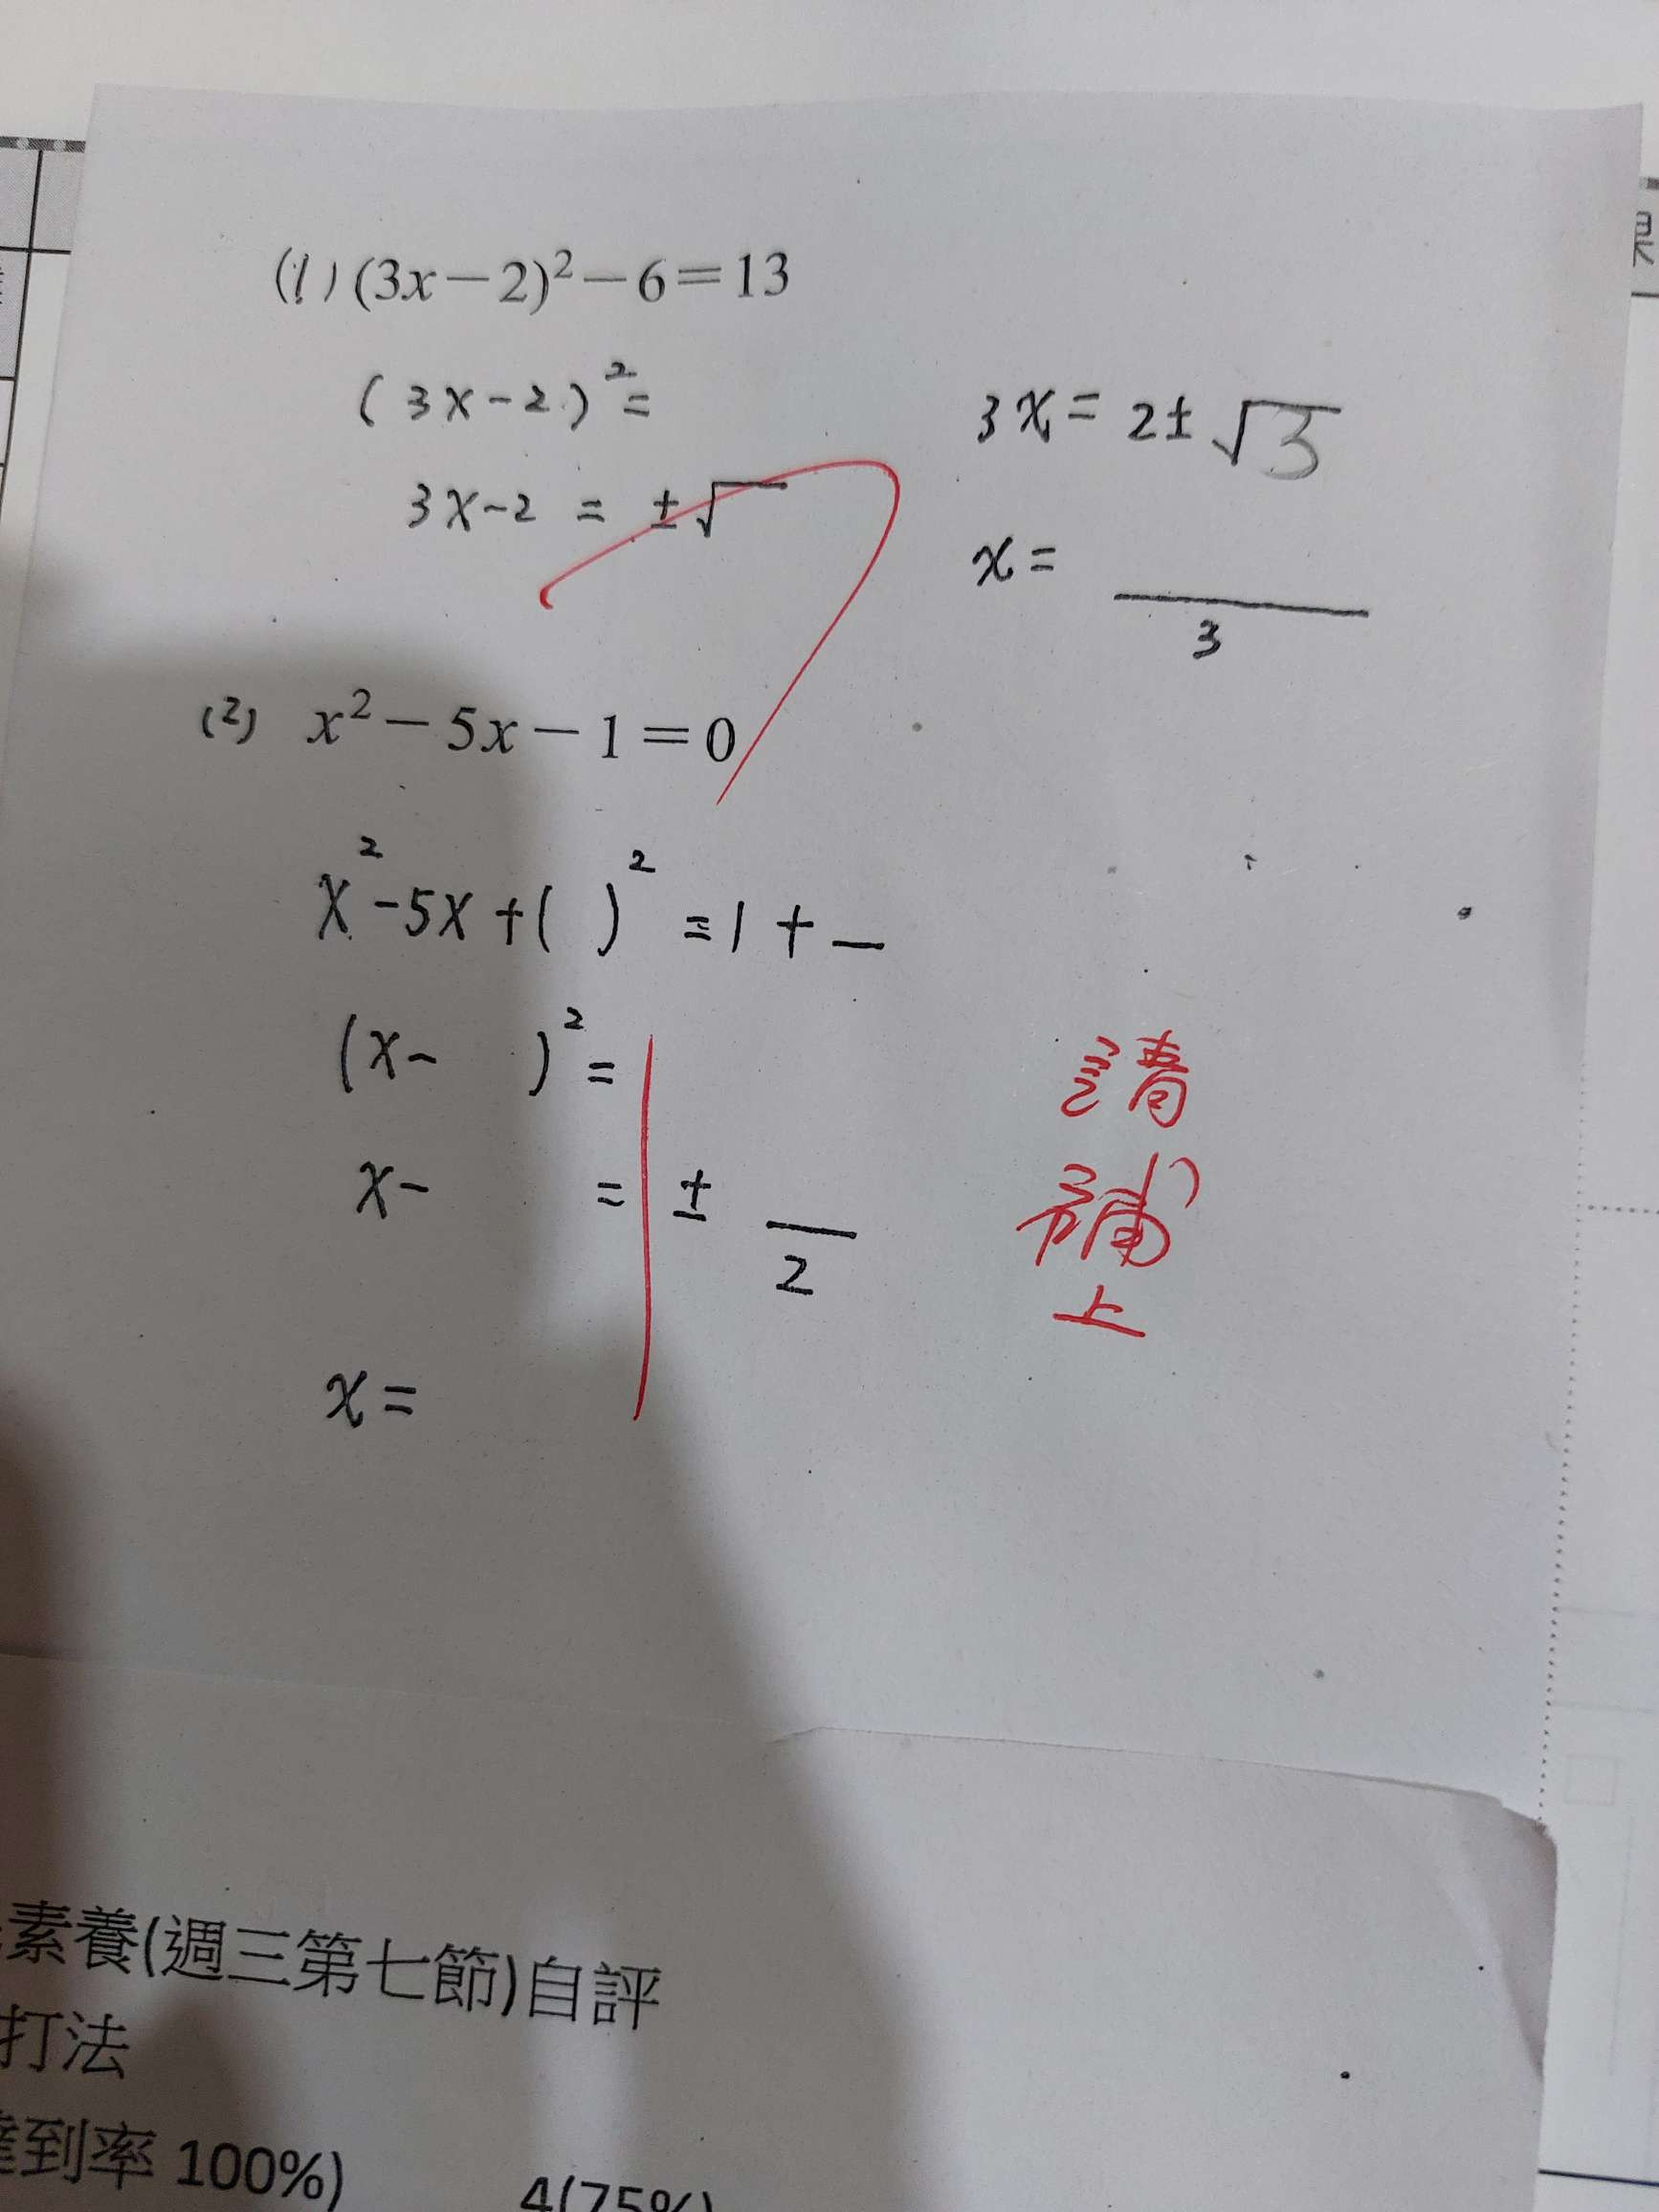 (1) (3x－2)²－6＝13
(3x-2)²=
3x-2 = ±√
3x = 2±√3
x = ———
3
(2) x²－5x－1＝0
x²-5x+( )² =1+_
(x- )² =
x- = ± —
2
x=
請
補
上
素養(週三第七節)自評
打法
達到率 100%)
4(75%)